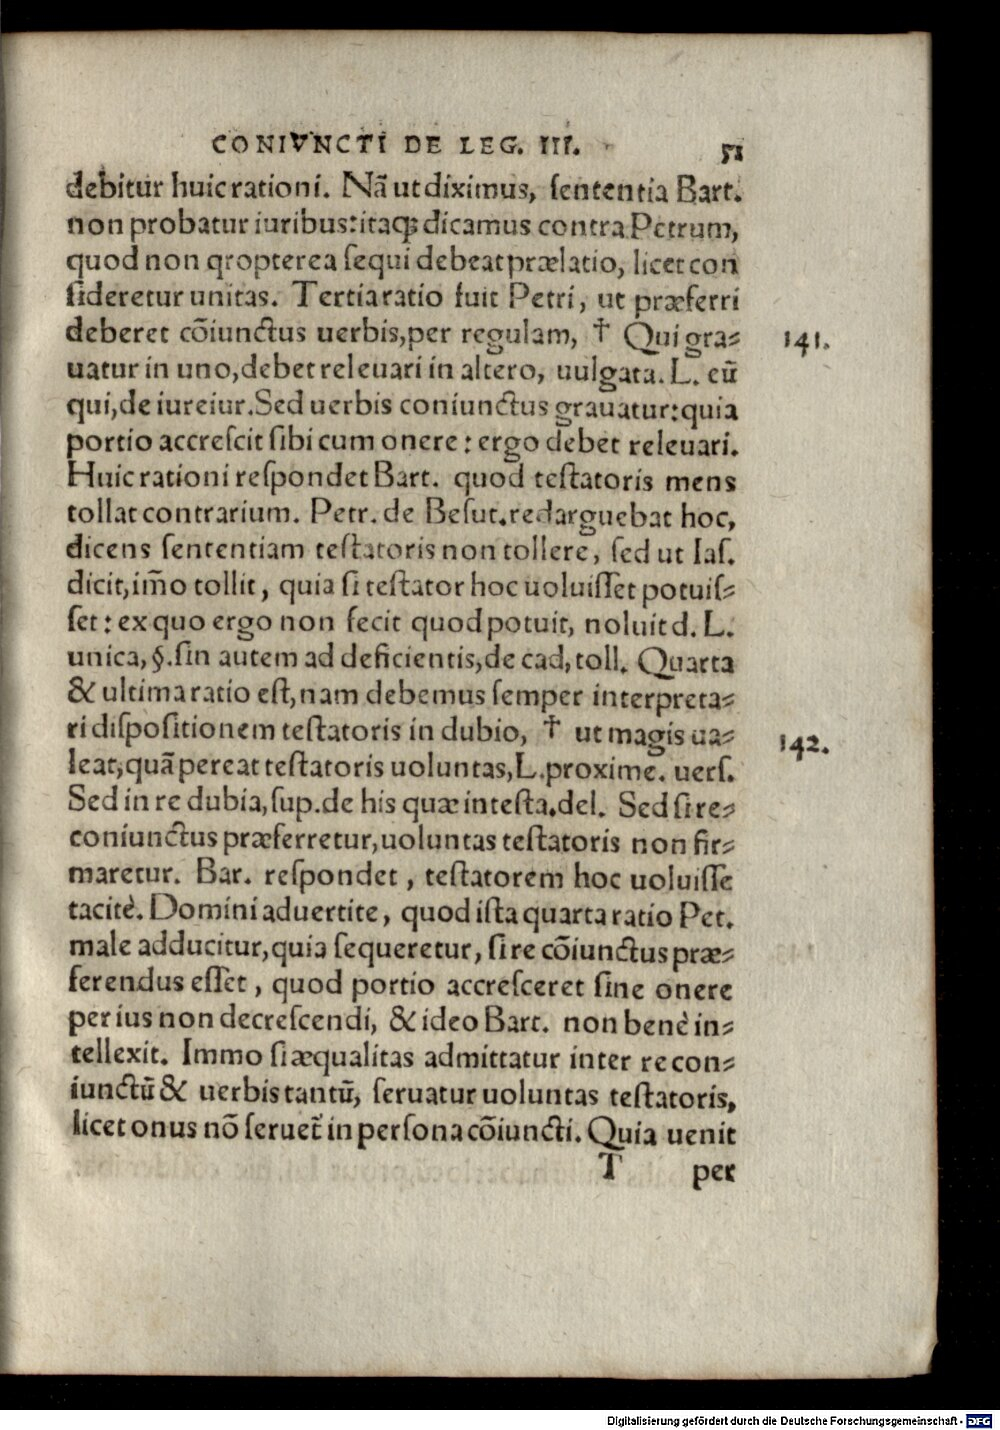 CONIVNCTI DE LEG. III. 51
debitur huic rationi. Nā ut diximus, ſententia Bart.
non probatur iuribus: itaqꝫ dicamus contra Petrum,
quod non qropterea ſequi debeat prælatio, licet con
ſideretur unitas. Tertia ratio fuit Petri, ut præferri
deberet cōiunctus uerbis, per regulam, † Qui gra⸗ 141.
uatur in uno, debet releuari in altero, uulgata. L. cū
qui, de iureiur. Sed uerbis coniunctus grauatur: quia
portio accreſcit ſibi cum onere: ergo debet releuari.
Huic rationi reſpondet Bart. quod teſtatoris mens
tollat contrarium. Petr. de Beſut. redarguebat hoc,
dicens ſententiam teſtatoris non tollere, ſed ut Iaſ.
dicit, im̄o tollit, quia ſi teſtator hoc uoluiſſet potuiſ⸗
ſet: ex quo ergo non fecit quod potuit, noluit d. L.
unica, §. ſin autem ad deficientis, de cad, toll. Quarta
& ultima ratio eſt, nam debemus ſemper interpreta⸗
ri diſpoſitionem teſtatoris in dubio, † ut magis ua⸗ 142.
leat, quā pereat teſtatoris uoluntas, L. proxime. uerſ.
Sed in re dubia, ſup. de his quæ in teſta. del. Sed ſi re⸗
coniunctus præferretur, uoluntas teſtatoris non fir⸗
maretur. Bar. reſpondet, teſtatorem hoc uoluiſſe
tacitè. Domini aduertite, quod iſta quarta ratio Pet.
male adducitur, quia ſequeretur, ſi re cōiunctus præ⸗
ferendus eſſet, quod portio accreſceret ſine onere
per ius non decreſcendi, & ideo Bart. non benè in⸗
tellexit. Immo ſi æqualitas admittatur inter re con⸗
iunctū & uerbis tantū, ſeruatur uoluntas teſtatoris,
licet onus nō ſeruet̄ in perſona cōiuncti. Quia uenit
T per
Digitalisierung gefördert durch die Deutsche Forschungsgemeinschaft - DFG